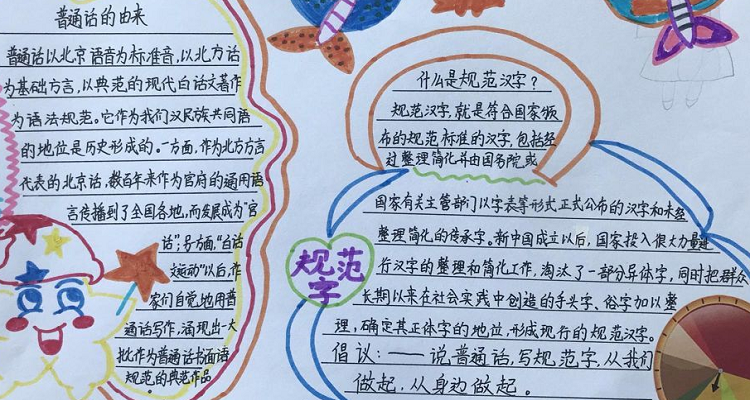 普通话的由来
普通话以北京语音为标准音,以北方话
为基础方言,以典范的现代白话文著作
为语法规范。它作为我们汉民族共同语
的地位是历史形成的。一方面,作为北方方言
代表的北京话,数百年来作为官府的通用语
言传播到了全国各地,而发展成为"官
话";另方面,"白话
文运动"以后,作
家们自觉地用普
通话写作,涌现出一大
批作为普通话书面语
规范的典范作品。
什么是规范汉字?
规范汉字,就是符合国家颁
布的规范标准的汉字,包括经
过整理简化并由国务院或
国家有关主管部门以字表等形式正式公布的汉字和未经
整理简化的传承字。新中国成立以后,国家投入很大力量进
行汉字的整理和简化工作,淘汰了一部分异体字,同时把群众
长期以来在社会实践中创造的手头字、俗字加以整
理,确定其正体字的地位,形成现行的规范汉字。
规范
字
倡议:——说普通话,写规范字,从我们
做起,从身边做起。